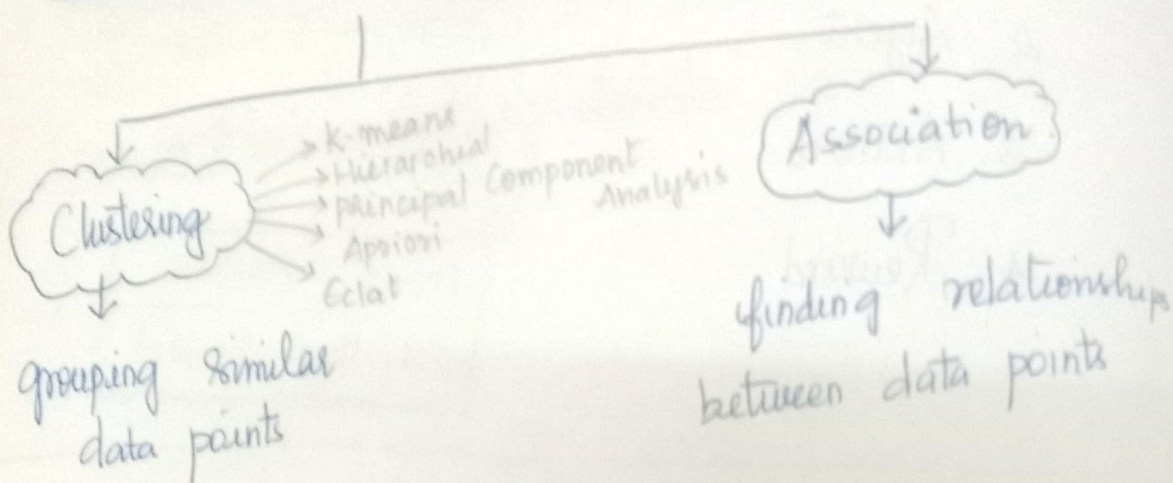 Clustering
k-means
Hierarchial
principal Component Analysis
Apriori
Eclat
grouping similar
data points
Association
finding relationships
between data points